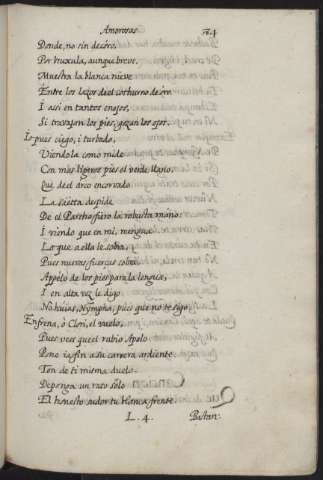 Amorosas 164
Donde, no sin decóro,
Por bruxula, aunque breve,
Muestra la blanca nieve
Entre los lazos del cothurno de oro
I assi en tantos enojos,
Si trabajan los pies, gozan los ojos.
Io pues ciego, i turbado,
Viendola como mide
Con mas ligeros pies el verde llano,
Que de el arco encorvado
La saetta despide
De el Partho fiero la robusta mano:
I viendo que en mi, mengua
Lo que a ella le sobra,
Pues nuevas fuerças cobra,
Appélo de los pies para la lengua,
I en alta voz le digo
No huias, Nympha, pues que no te sigo,
Enfrena, ò Clori, el vuelo,
Pues vees que el rubio Apolo
Pone ia fin a su carrera ardiente.
Ten de ti misma duelo
Deponga un rato solo
El honesto sudor tu blanca frente.
L. 4. Bastan